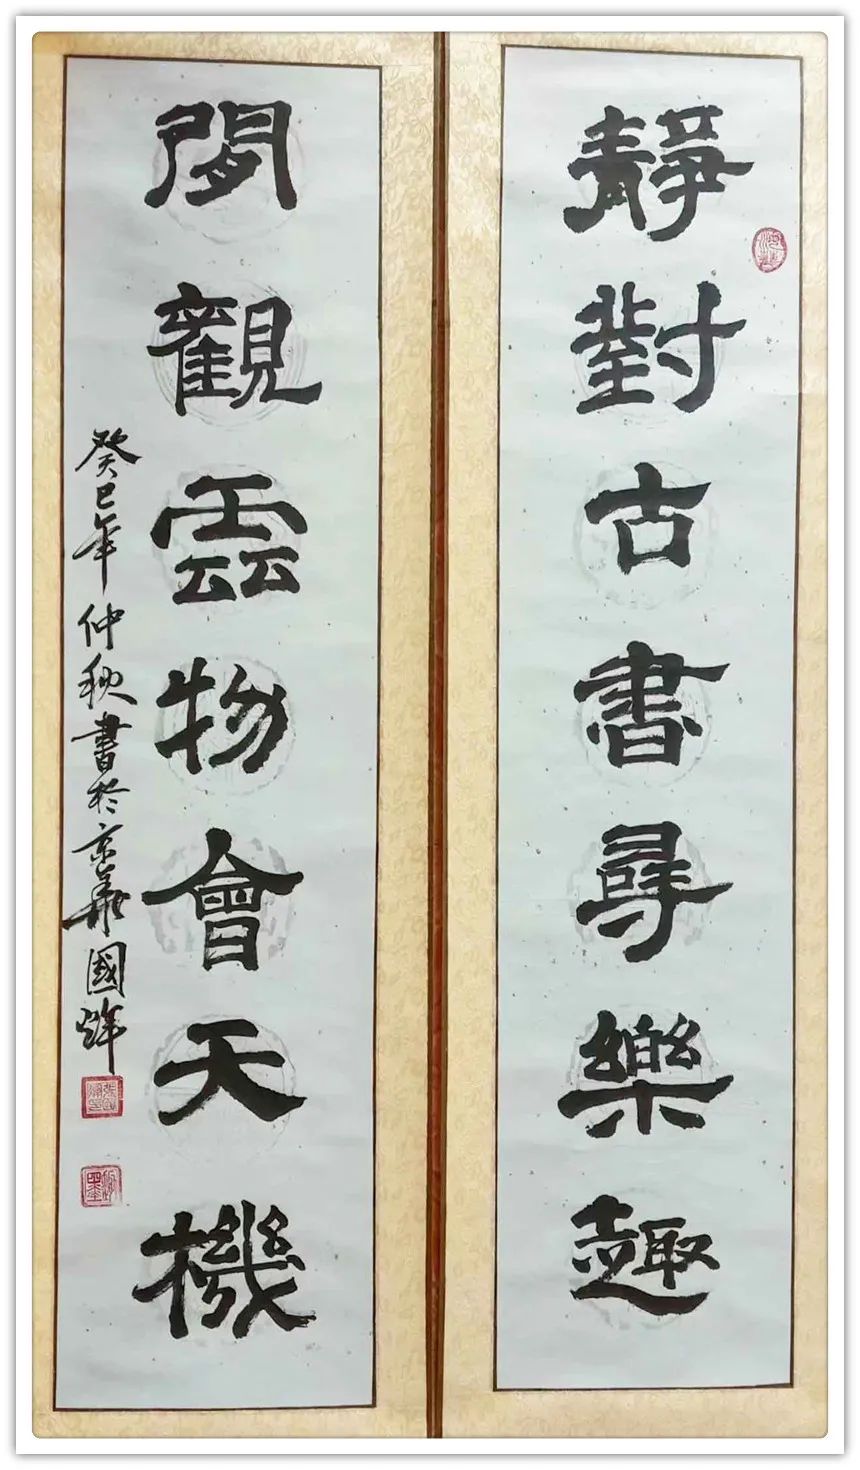 靜對古書尋樂趣
閒觀雲物會天機
癸巳年仲秋書於京華國輝